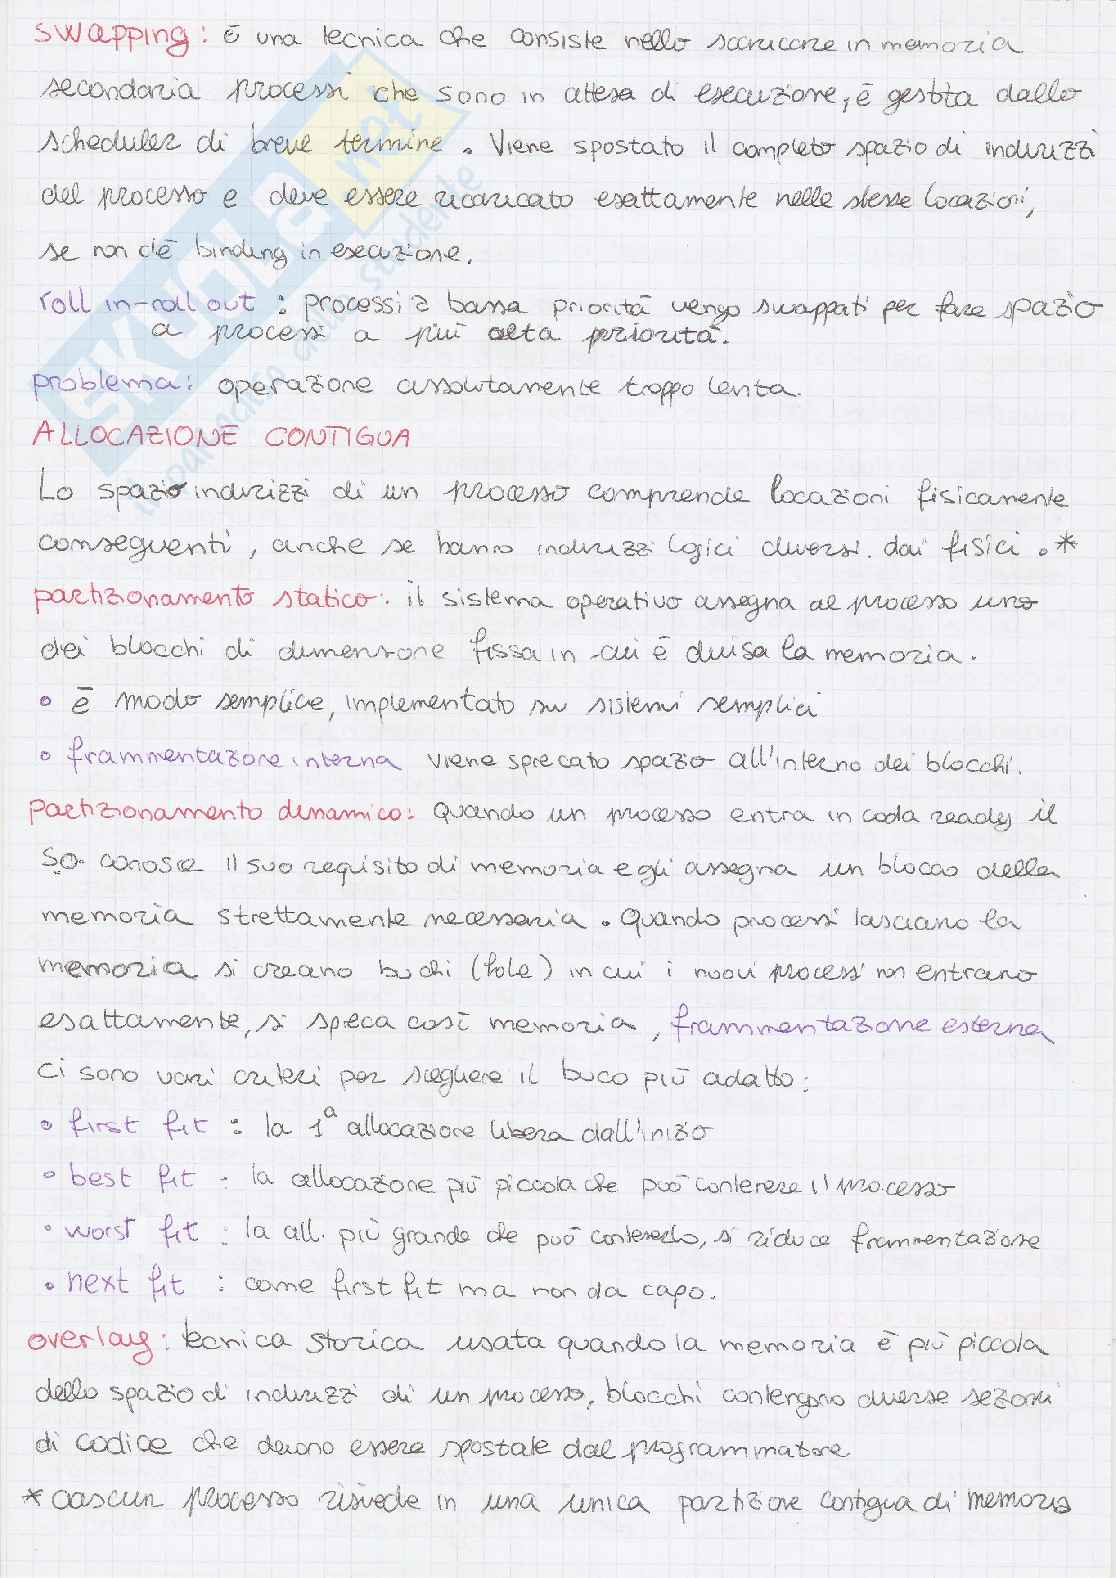 swapping: è una tecnica che consiste nello scaricare in memoria
secondaria processi che sono in attesa di esecuzione, è gestita dallo
scheduler di breve termine. Viene spostato il completo spazio di indirizzi
del processo e deve essere ricaricato esattamente nelle stesse locazioni,
se non c'è binding in esecuzione.
roll in-roll out: processi a bassa priorità vengo swappati per fare spazio
a processi a più alta priorità.
problema: operazione assolutamente troppo lenta.
ALLOCAZIONE CONTIGUA
Lo spazio indirizzi di un processo comprende locazioni fisicamente
conseguenti, anche se hanno indirizzi logici diversi. dai fisici. *
partizionamento statico: il sistema operativo assegna al processo uno
dei blocchi di dimensione fissa in cui è divisa la memoria.
• è modo semplice, implementato su sistemi semplici
• frammentazione interna viene sprecato spazio all'interno dei blocchi.
partizionamento dinamico: Quando un processo entra in coda ready il
SO. conosce il suo requisito di memoria e gli assegna un blocco della
memoria strettamente necessaria. Quando processi lasciano la
memoria si creano buchi (hole) in cui i nuovi processi non entrano
esattamente, si speca così memoria, frammentazione esterna
Ci sono vari criteri per scegliere il buco più adatto:
• first fit: la 1ª allocazione libera dall'inizio
• best fit: la allocazione più piccola che può contenere il processo
• worst fit: la all. più grande che può contenerlo, si riduce frammentazione
• next fit: come first fit ma non da capo.
overlay: tecnica storica usata quando la memoria è più piccola
dello spazio di indirizzi di un processo, blocchi contengono diverse sezioni
di codice che devono essere spostate dal programmatore
* ciascun processo risiede in una unica partizione contigua di memoria
SKUOLA.net